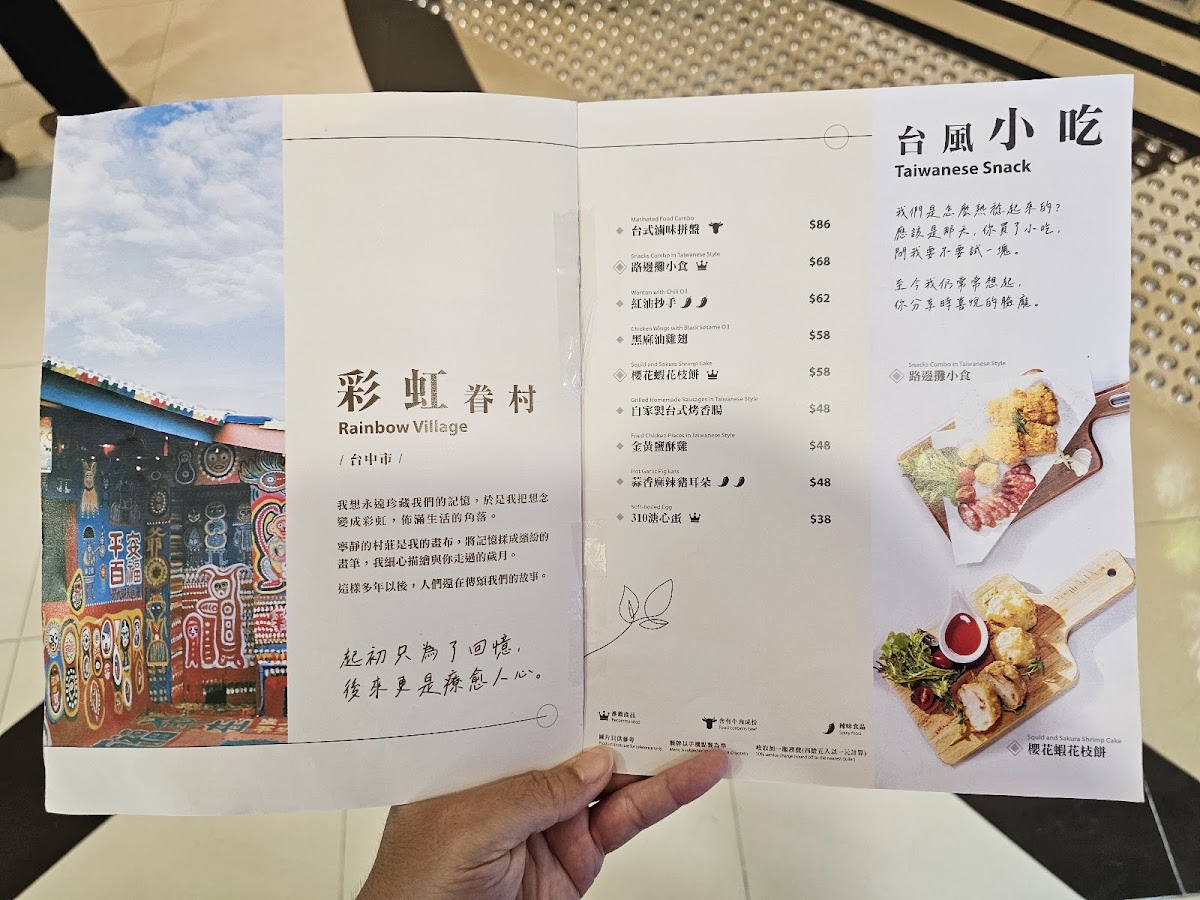 平安
百福
彩虹眷村
Rainbow Village
/ 台中市 /
我想永遠珍藏我們的記憶，於是我把想念
變成彩虹，佈滿生活的角落。
寧靜的村莊是我的畫布，將記憶揉成繽紛的
畫筆，我細心描繪與你走過的歲月。
這樣多年以後，人們還在傳頌我們的故事。
起初只為了回憶，
後來更是療愈人心。
Marinated Food Combo
台式滷味拼盤 $86
Snacks Combo in Taiwanese Style
路邊攤小食 $68
Wonton with Chili Oil
紅油抄手 $62
Chicken Wings with Black Sesame Oil
黑麻油雞翅 $58
Squid and Sakura Shrimp Cake
櫻花蝦花枝餅 $58
Grilled Homemade Sausages in Taiwanese Style
自家製台式烤香腸 $48
Fried Chicken Pieces in Taiwanese Style
金黃鹽酥雞 $48
Hot Garlic Pig Ears
蒜香麻辣豬耳朵 $48
Soft-boiled Egg
310溏心蛋 $38
推薦食品
Recommended
含有牛肉成份
Food contains beef
辣味食品
Spicy food
圖片只供參考
餐牌以手機點餐為準
收取加一服務費(四捨五入以一元計算)
10% service charge (round off to the nearest dollar)
台風小吃
Taiwanese Snack
我們是怎麼熱稔起來的？
應該是那天，你買了小吃，
問我要不要試一塊。
至今我仍常常想起，
你分享時喜悅的臉龐。
Snacks Combo in Taiwanese Style
路邊攤小食
Squid and Sakura Shrimp Cake
櫻花蝦花枝餅